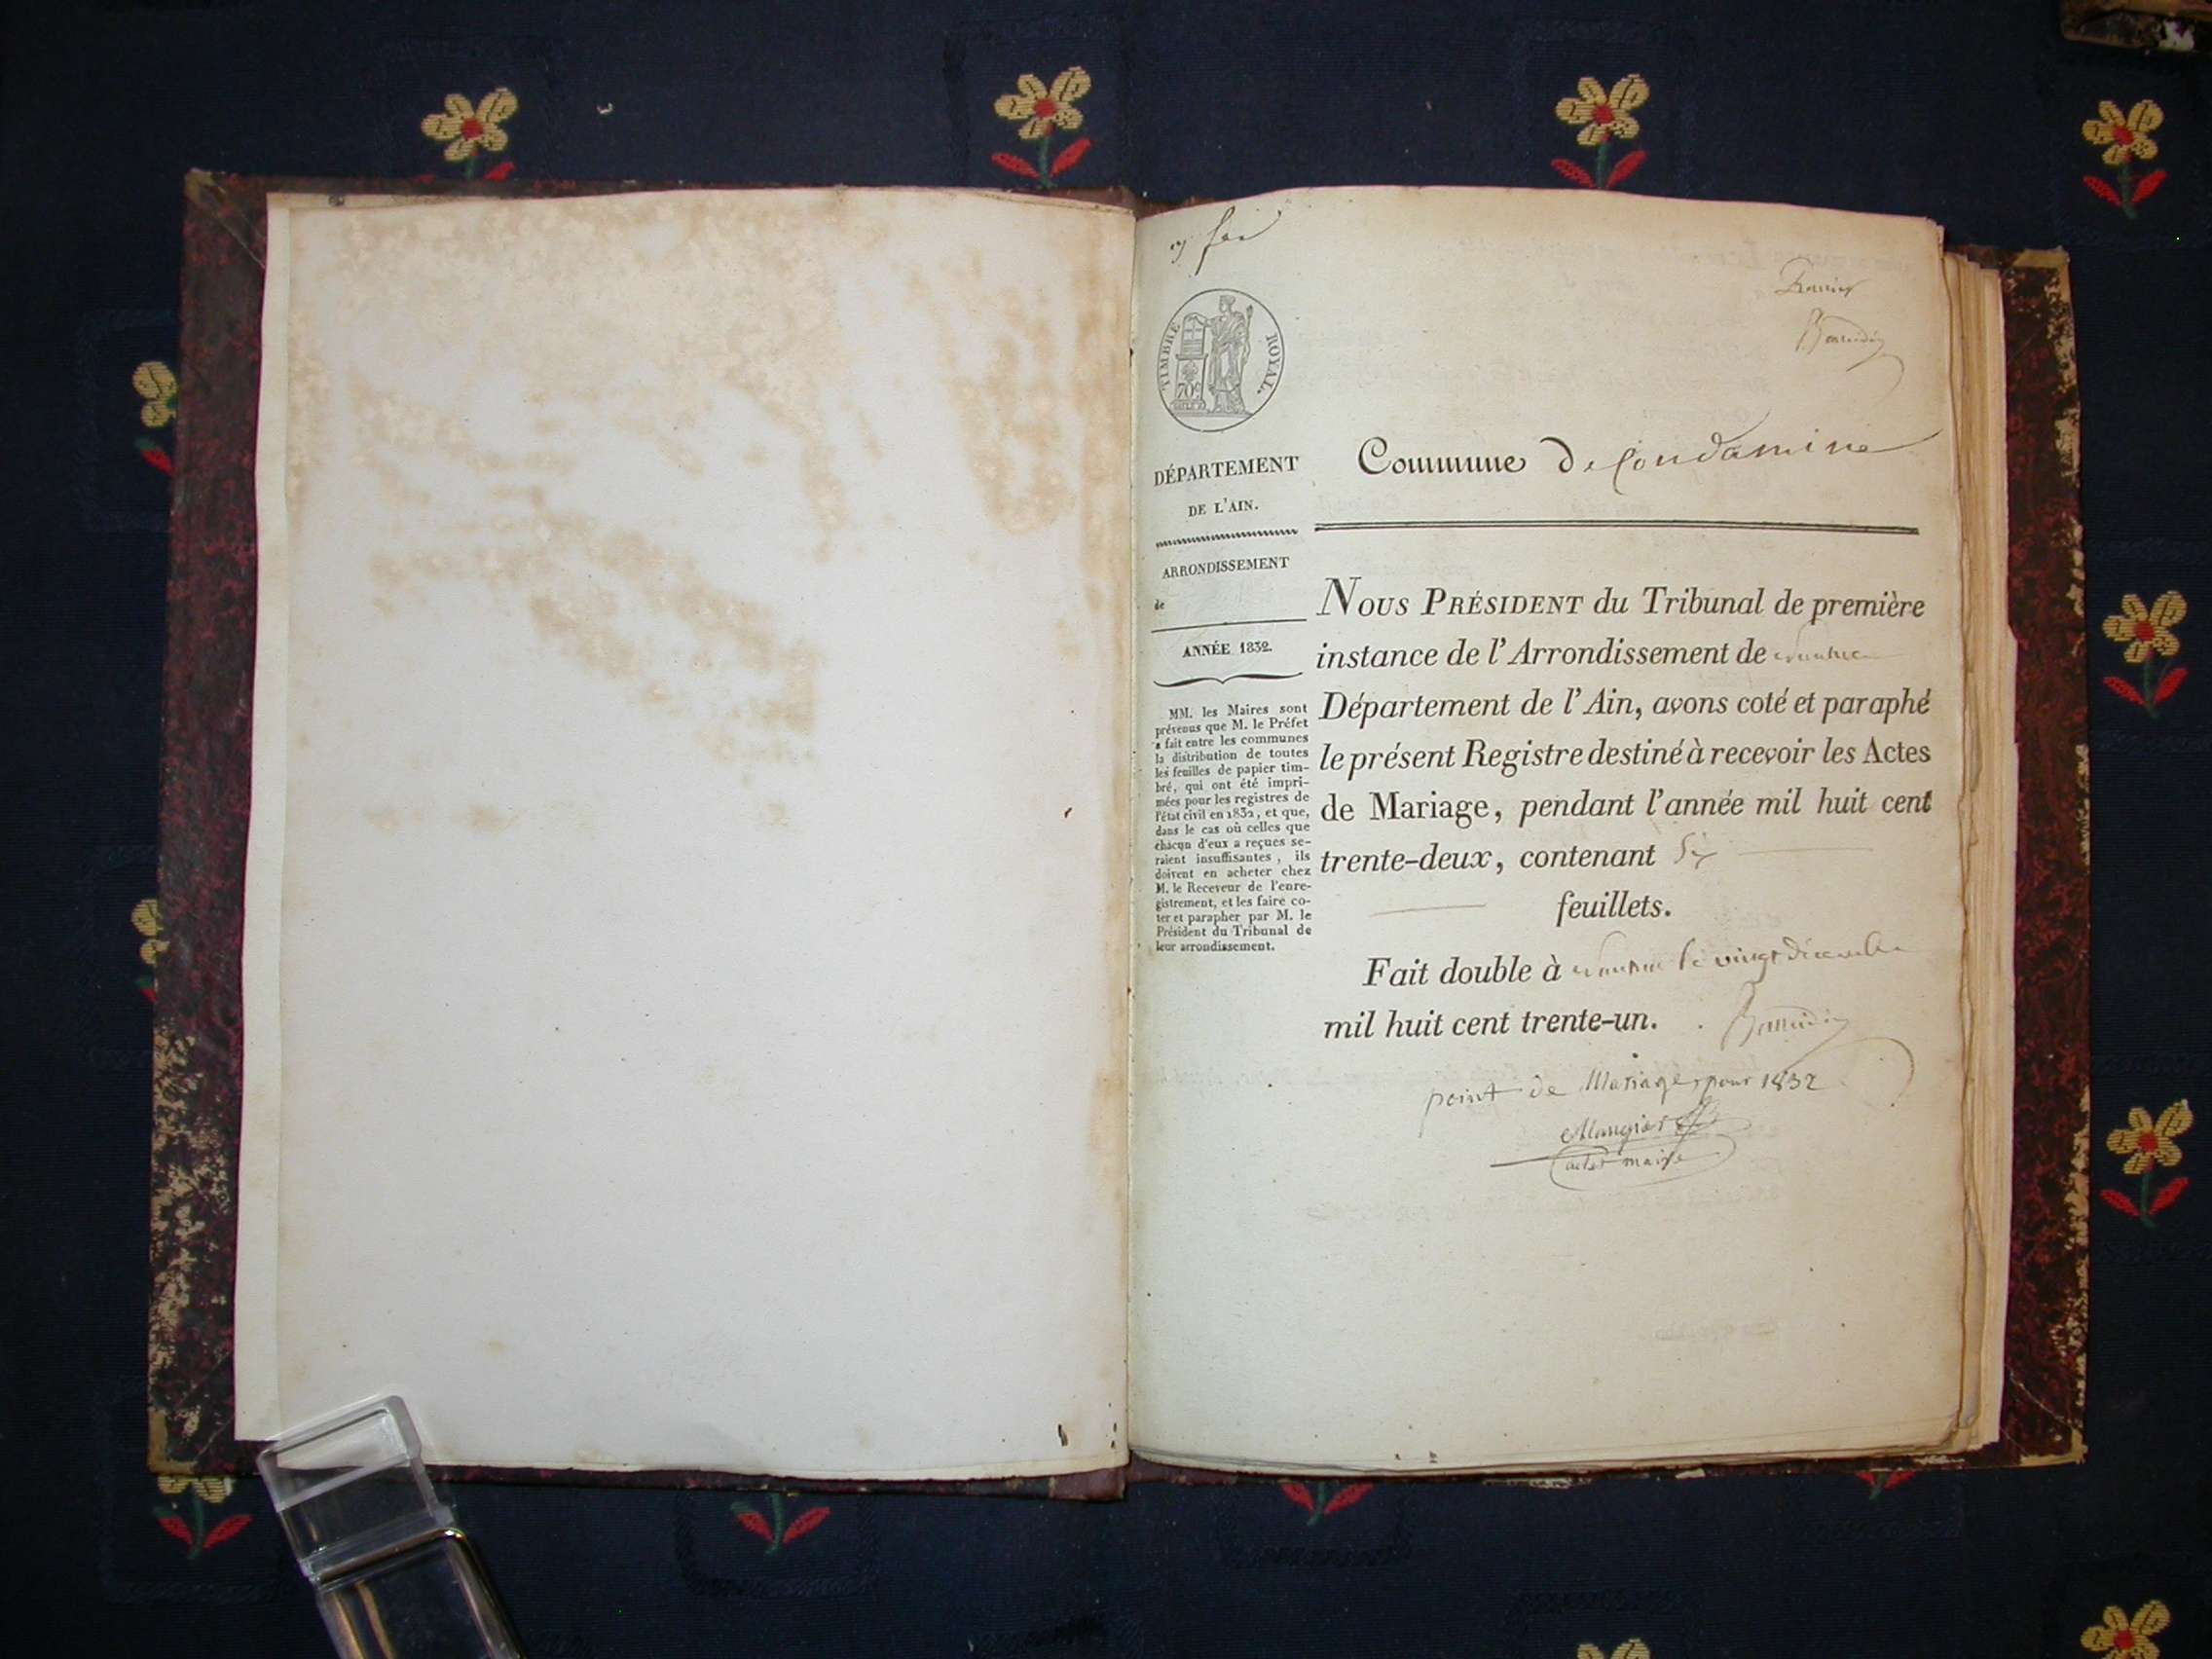 TIMBRE ROYAL.
70c
DÉPARTEMENT
DE L'AIN.
ARRONDISSEMENT
de
ANNÉE 1832.
MM. les Maires sont
prévenus que M. le Préfet
a fait entre les communes
la distribution de toutes
les feuilles de papier tim-
bré, qui ont été impri-
mées pour les registres de
l'état civil en 1832, et que,
dans le cas où celles que
chacun d'eux a reçues se-
raient insuffisantes, ils
doivent en acheter chez
M. le Receveur de l'enre-
gistrement, et les faire co-
ter et parapher par M. le
Président du Tribunal de
leur arrondissement.
Commune de Condamine
NOUS PRÉSIDENT du Tribunal de première
instance de l'Arrondissement de
Département de l'Ain, avons coté et paraphé
le présent Registre destiné à recevoir les Actes
de Mariage, pendant l'année mil huit cent
trente-deux, contenant Six
feuillets.
Fait double à le vingt décembre
mil huit cent trente-un.
point de Mariages pour 1832
maire